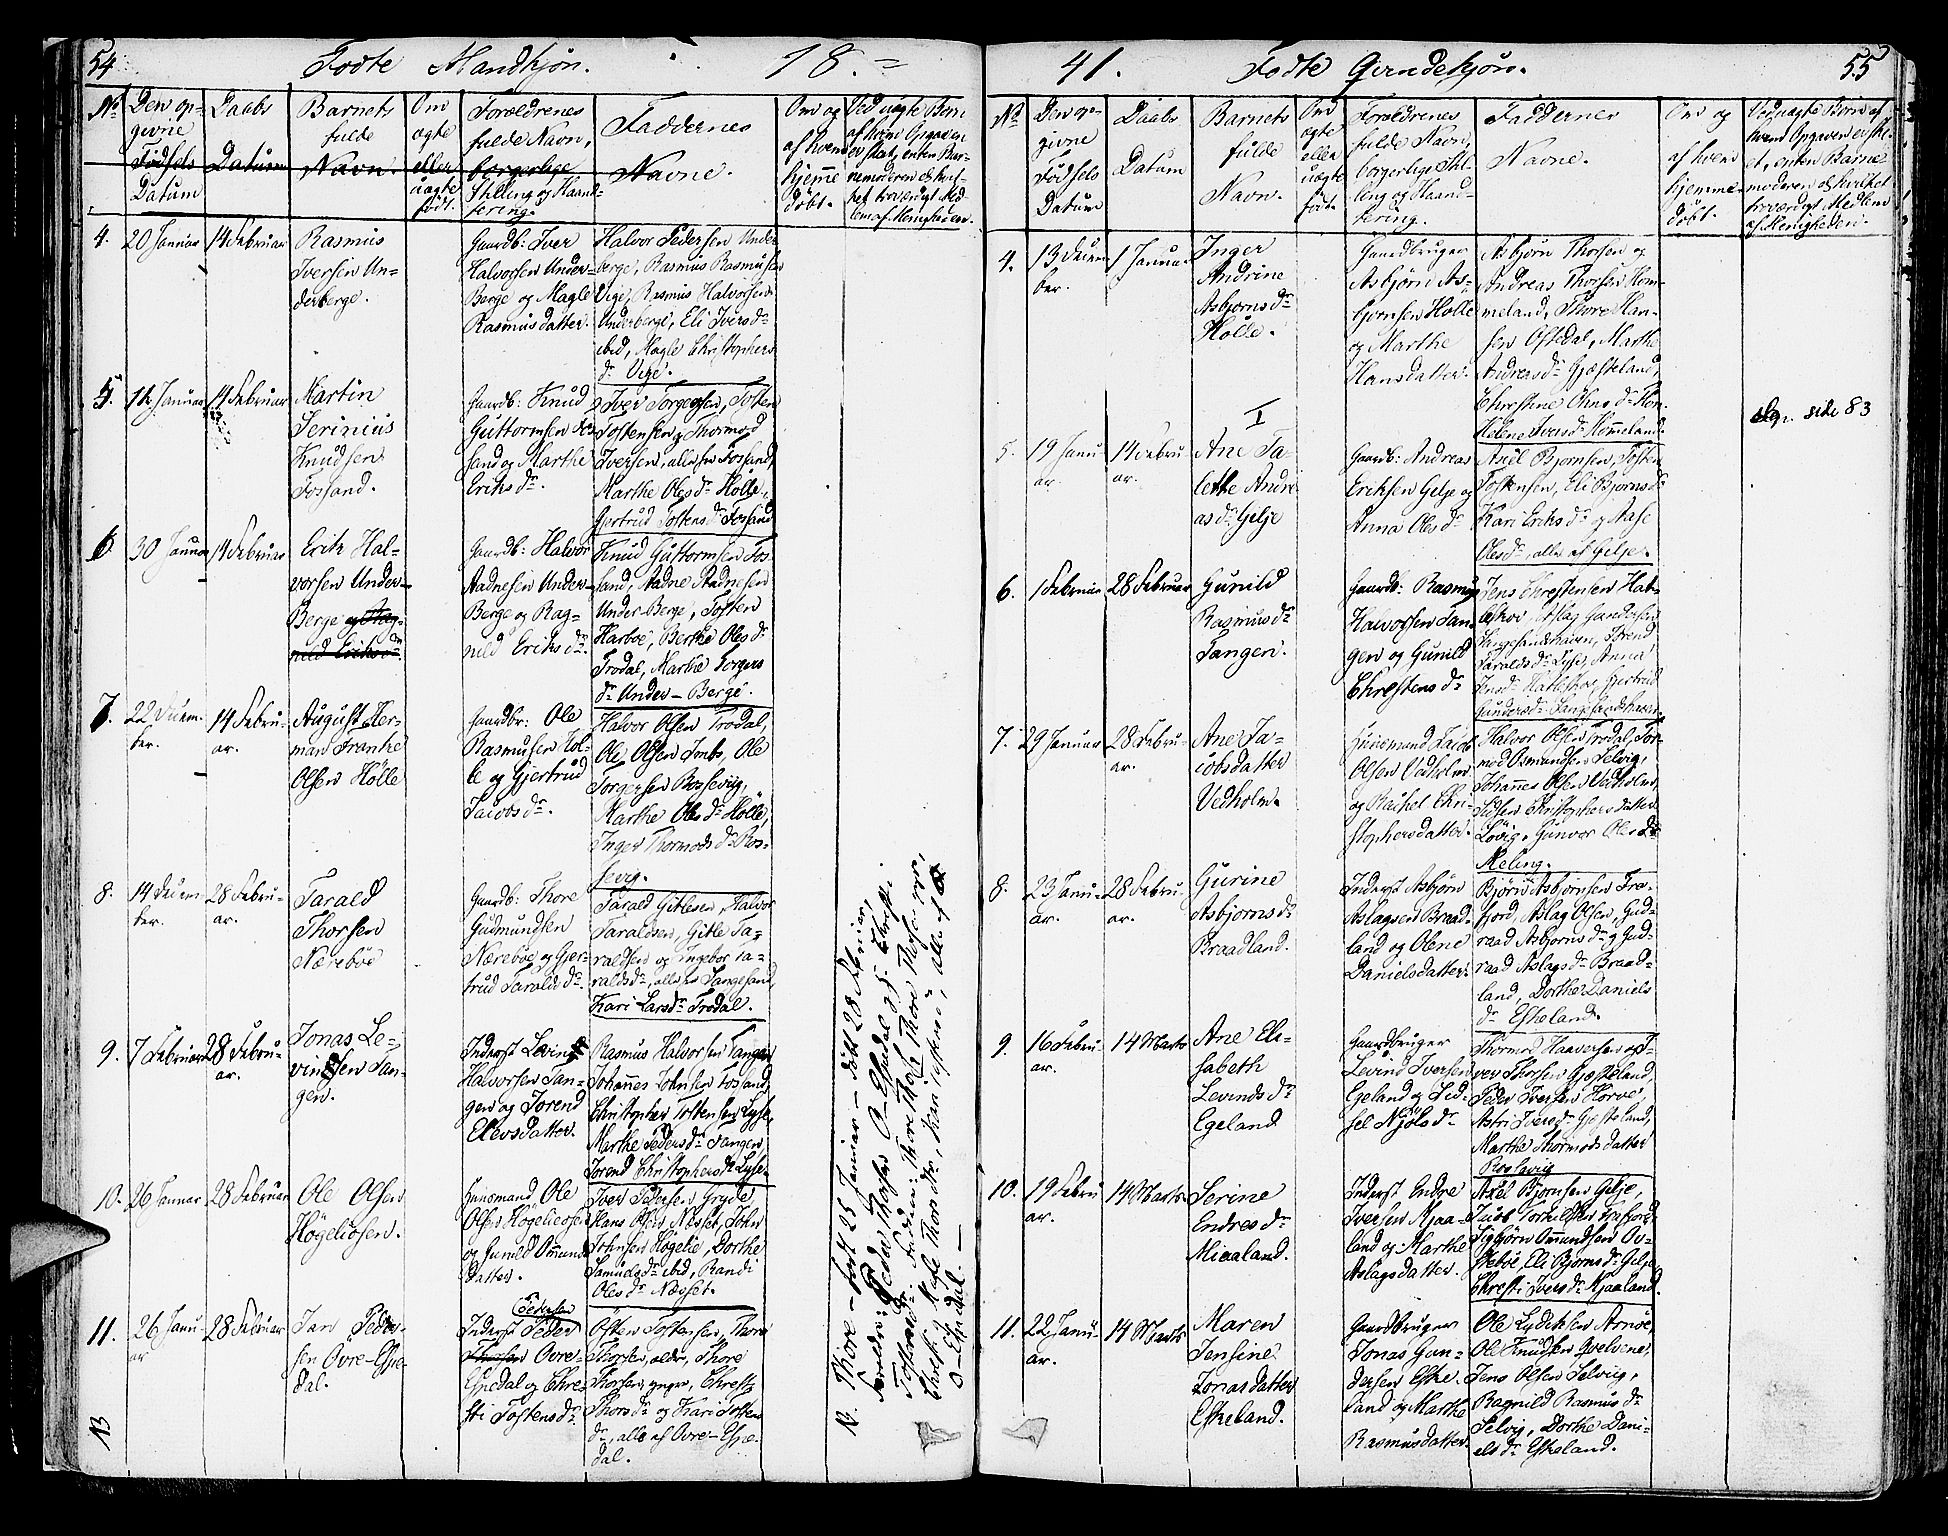 54
Fødte Mandkjøn. 18.=
No
Den op-
givne
Fødsels
Datum
Daabs
Datum
Barnets
fulde
Navn.
Om
ægte
eller
uægte
født.
Forældrenes
fulde Navn,
borgerlige
Stilling og Haand-
tering.
Faddernes
Navne.
Om og
af hvem
hjemme
døbt.
Ved uægte Børn
af hvem Opgaven
er skeet, enten Bar-
nemoderen &c hvil-
ket troværdigt Med-
lem af Menigheden.
4. 20 Januar
14 Februar
Rasmus
Iversen Un-
derberge.
Gaardb: Iver
Halvorsen Under-
Berge og Magle
Rasmusdatter.
Halvor Pedersen Under
berge, Rasmus Rasmusen
Vige, Rasmus Halvorsen
Underberge, Eli Iversdr
ibid, Magle Christophers
dr Vige.
5. 14 Januar
14 Februar
Martin
Serinius
Knudsen
Fossand.
Gaardb: Knud
Guttormsen Fos-
sand og Marthe
Eriksdr.
Iver Torgersen, Tosten
Tostensen, Thormod
Iversen, alle fra Fossand,
Marthe Olesdr Hølle,
Gjertrud Tostensdr Fossand
6. 30 Januar
14 Februar
Erik Hal-
vorsen Under-
Berge og Rag-
nild Eriksdr.
Gaardb: Halvor
Aadnesen Under-
Berge og Rag-
nild Eriksdr.
Knud Guttormsen Fos-
sand, Aadne Aadnesen
Under-Berge, Tosten
Harboe, Berthe Olesdr
Frodal, Marthe Torgers
dr Under-Berge.
7. 22 Decem-
ber.
14 Febru-
ar.
August Her-
man Franke
Olsen Hølle
Gaardbr: Ole
Rasmusen Høl-
le og Gjertrud
Jacobsdr.
Halvor Olsen Frodal,
Ole Olsen Imbs, Ole
Torgersen Rossevig,
Marthe Olesdr Hølle,
Inger Thormodsdr Ros-
sevig.
8. 14 Decem-
ber.
28 Febru-
ar.
Tarald
Thorsen
Nærebøe
Gaardb: Thore
Gudmundsen
Nærebøe og Gjer-
trud Taraldsdr.
Tarald Gitlesen, Halvor
Taraldsen, Gitle Ta-
raldsen og Ingebor Ta-
raldsdr, alle fra Fangesand,
Kari Larsdr Frodal.
9. 7 Februar
28 Febru-
ar.
Jonas Le-
vinsen Tan-
gen.
Inderst Levin
Halvorsen Tan-
gen og Jorend
Elevsdatter.
Rasmus Halvorsen Tangen
Johannes Johnsen Fossand,
Christopher Tostensen Lyse,
Marthe Pedersdr Tangen,
Jorend Christophersdr Lyse.
10. 26 Januar
28 Februar
Ole Olsen
Høgeliosen.
Huusmand Ole
Olsen Høgeliosen
og Guneld Ommunds
datter.
Iver Pedersen Gryde,
Hans Olsen Næsset, John
Johnsen Høgelie, Dorthe
Samuelsdr ibid, Randi
Olesdr Næsset.
11. 26 Janu-
ar
28 Februar
Jan Peder-
sen Øvre-Espe-
dal.
Pedersen
Inderst Peder
Thorsen Øvre-
Espedal og Chre-
sti Tostensdr.
Østen Tostensen, Thore
Thorsen, ældr, Thore
Thorsen, yngre, Chresti
Thorsdr og Kari Tosten
dr, alle af Øvre-Espe-
dal.
NB
NB. Thore – født 25 Januar – døbt 28 Februar,
Forældre: Peder Thorsen Ø-Espedal og Chresti
Tostensdr. Faddere: Thore Thor
Ø-Espedal. –
41. Fødte Qvindekjøn.
55
No
Den op-
givne
Fødsels
Datum
Daabs
Datum
Barnets
fulde
Navn.
Om
ægte
eller
uægte
født.
Forældrenes
fulde Navn,
borgerlige Stil-
ling og Haand-
tering.
Faddernes
Navne.
Om og
af hvem
hjemme-
døbt.
Ved uægte Børn af
hvem Opgaven er ske-
et, enten Barne-
moderen &c hvilket
troværdigt Medlem
af Menigheden.
4. 13 Decem-
ber.
1 Januar
Inger
Andrine
Asbjørnsdr
Hølle.
Gaardbruger
Asbjørn As-
bjørnsen Hølle
og Marthe
Hansdatter.
Asbjørn Thorsen og
Andreas Thorsen Hom-
meland, Thore Han-
sen Oftedal, Marthe
Andreasdr Gjesteland,
Chrestine Ohnsdr Hom.
Helene Iversdr Hommeland.
5. 19 Janu-
ar
14 Febru-
ar.
I
Ane Ta-
lette Andre-
asdr Gelje
Gaardb: Andreas
Eriksen Gelje og
Anna Olesdr
Axel Bjørnsen, Tosten
Tostensen, Eli Bjørnsdr
Kari Eriksdr og Aase
Olesdr, alle af Gelje.
dgr. side 83
6. 1 Februar
28 Februar
Gunild
Rasmusdr
Tangen.
Gaardb: Rasmus
Halvorsen Tan-
gen og Gunild
Chrestensdr
Jens Chrestensen Hat-
leskov, Aslag Gundersen
Fangesandshavn, Jorend
Taraldsdr Lyse, Anna
Jensdr Hatleskog, Gjertrud
Gundersdr Fangesandshavn.
7. 29 Januar
28 Febru-
ar.
Ane Ja-
cobsdatter
Vedholm.
Huusmand Jacob
Olsen Vedholm
og Rachel Chri-
stophersdatter.
Halvor Olsen Frodal, Tor-
mod Osmundsen Selvig,
Johannes Olsen Vedholm,
Sidsen Christophersdatter
Løvig, Gunvor Olesdr
Meling.
8. 23 Janu-
ar.
28 Febru-
ar.
Gurine
Asbjørnsdr
Braadland.
Inderst Asbjørn
Aslagsen Braad-
land og Olene
Danielsdatter.
Bjørn Asbjørnsen Fra-
fjord, Aslag Olsen, Gud-
raad Asbjørnsdr og Gud-
raad Aslagsdr Braad-
land, Dorthe Daniels
dr Eskeland.
9. 16 Febru-
ar.
14 Marts
Ane Eli-
sabeth
Levindsdr
Egeland
Gaardbruger
Levind Iversen
Egeland og Sid-
sel Njølsdr
Thormod Haaversen og I-
ver Thorsen Gjesteland,
Peder Iversen Horve,
Astri Iversdr Gjesteland,
Marthe Thormodsdatter
Roslavig
10. 19 Febru-
ar.
14 Marts
Serine
Endresdr
Miaaland.
Inderst Endre
Iversen Mjaa-
land og Marthe
Aslagsdatter.
Axel Bjørnsen Gelje,
Jacob Torkildsen Frafjord,
Sigbjørn Ommundsen Ov-
stebø, Eli Bjørnsdr Gelje,
Chresti Iversdr Mjaaland.
11. 22 Janu-
ar.
14 Marts
Maren
Jensine
Jonasdatter
Eskeland.
Gaardbruger
Jonas Gun-
dersen Eske-
land og Marthe
Rasmusdatter.
Ole Lydeksen Arnøe,
Ole Knudsen Qvelvene,
Jens Olsen Selvig,
Ragnild Rasmusdr
Selvig, Dorthe Dani-
elsdr Eskeland.